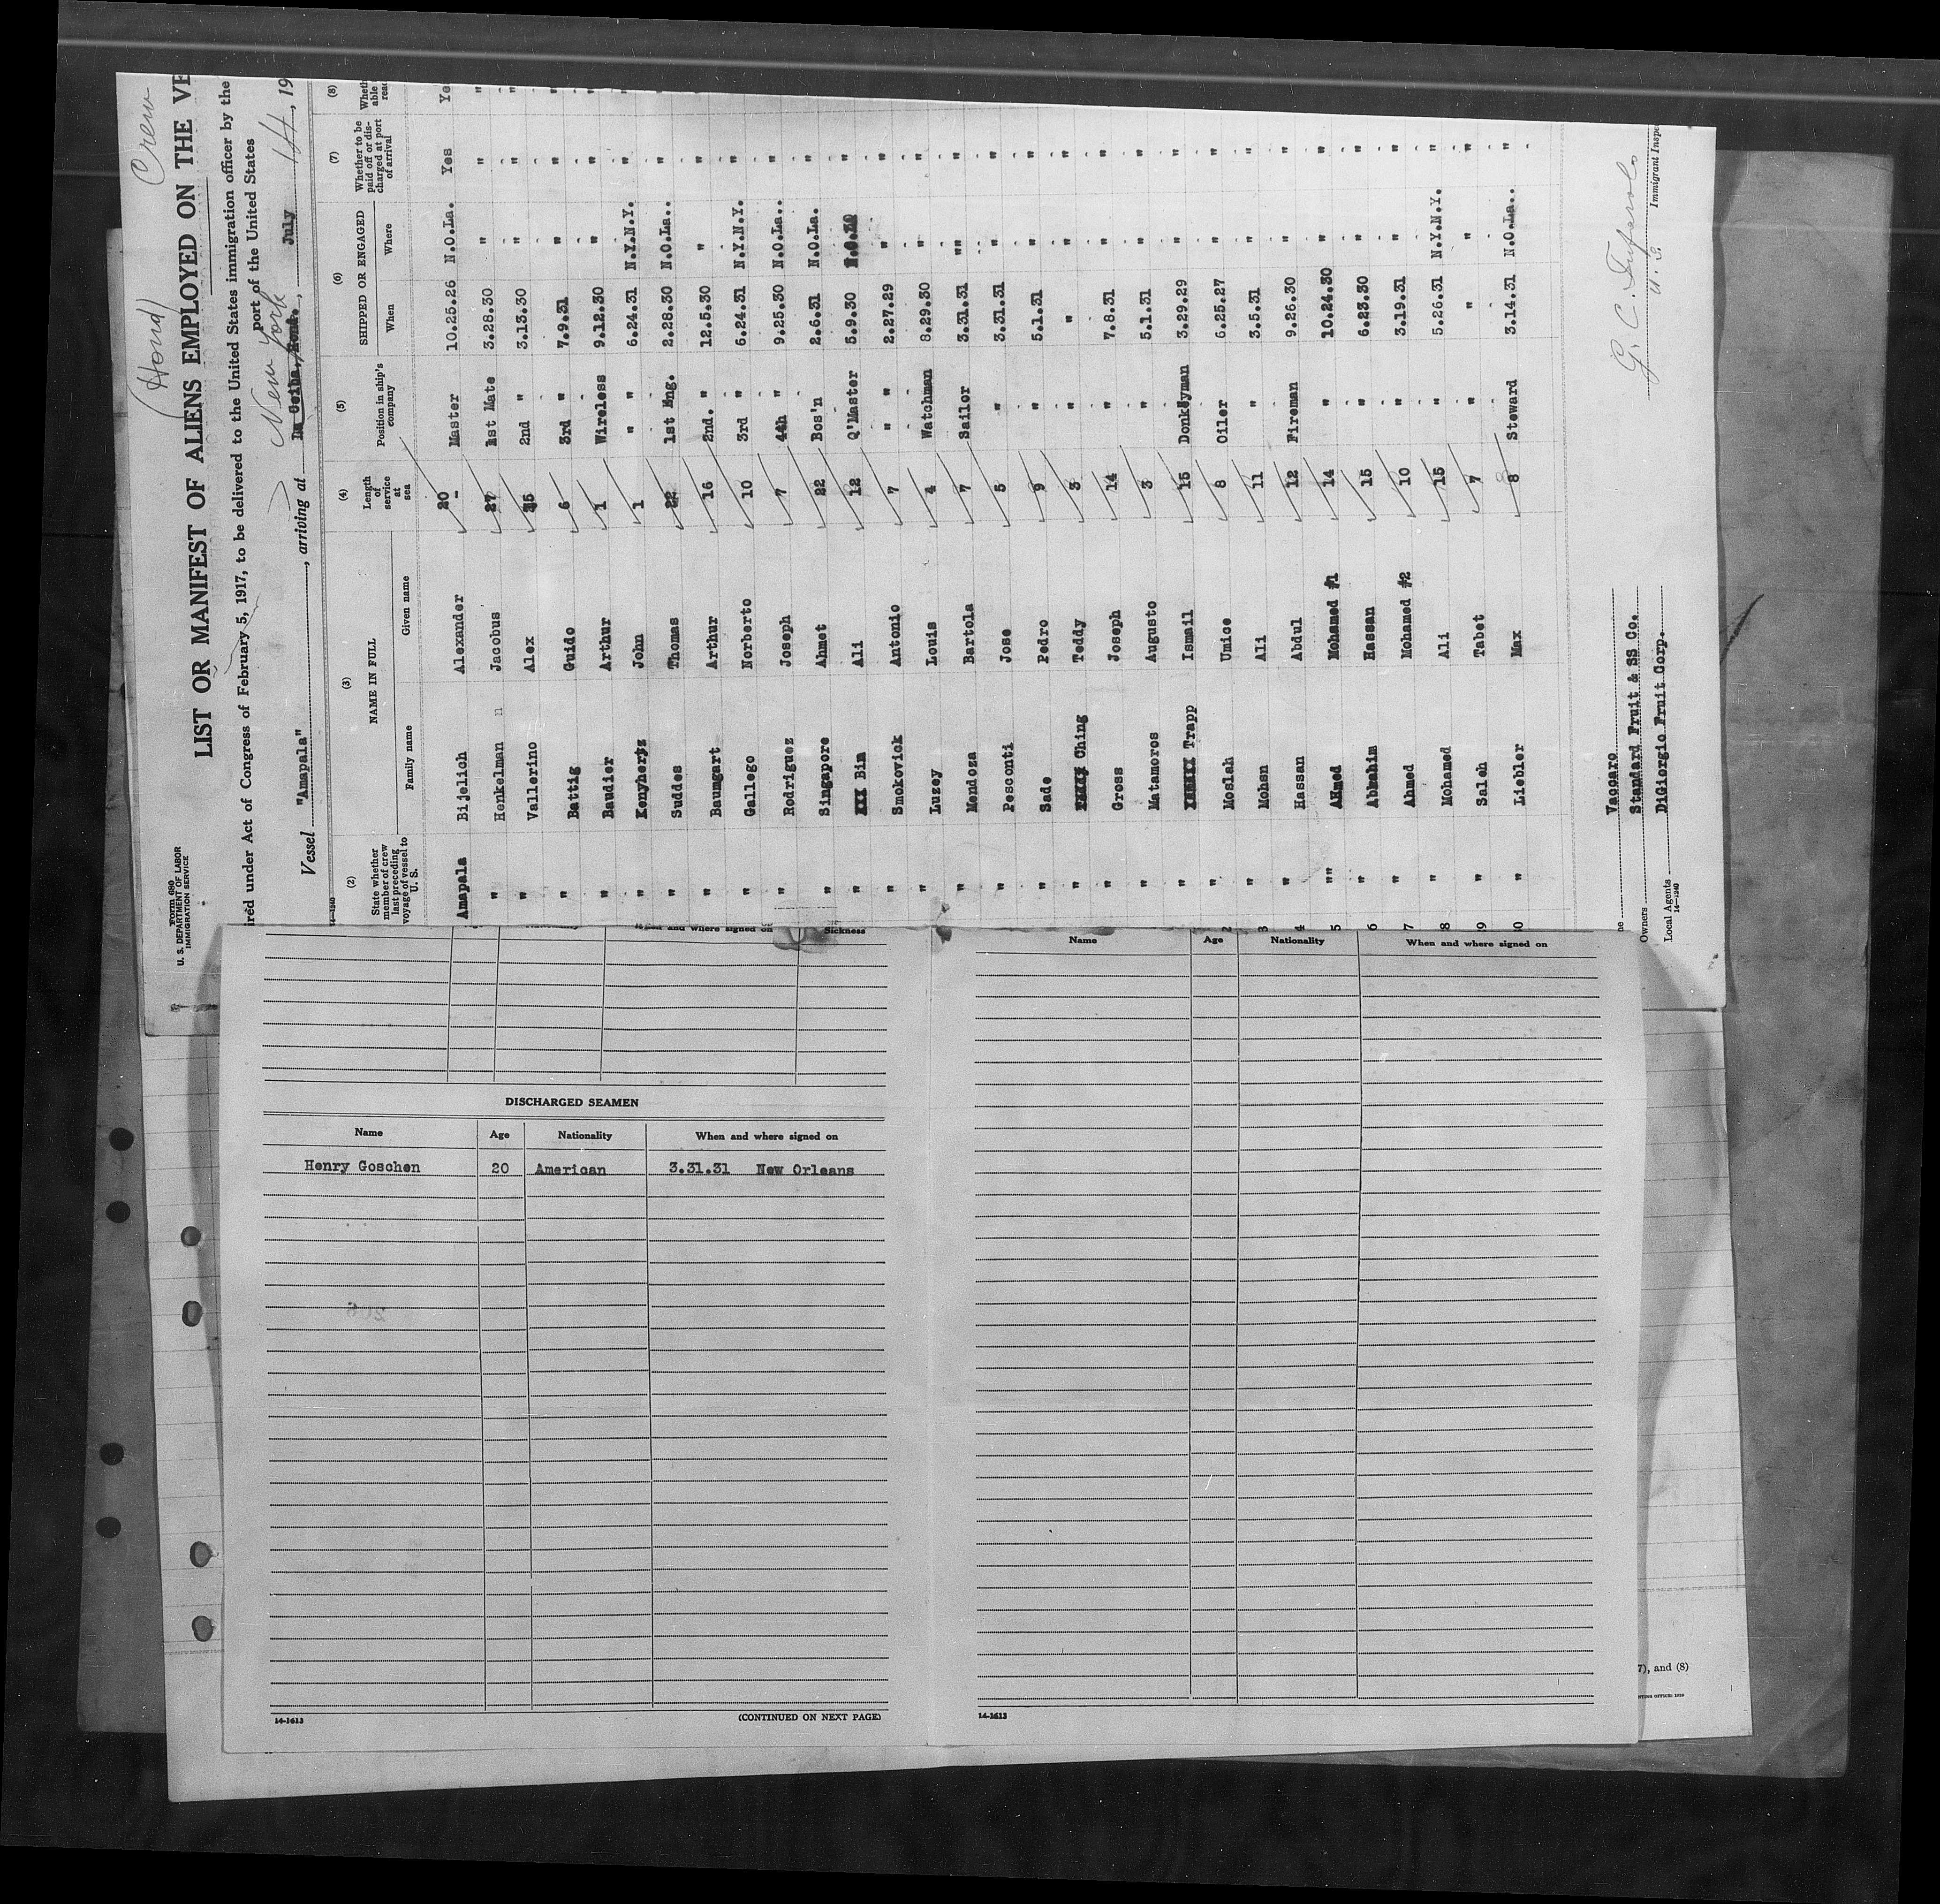 (Hond) Crew
Form 680
U. S. DEPARTMENT OF LABOR
IMMIGRATION SERVICE
LIST OR MANIFEST OF ALIENS EMPLOYED ON THE VE
ired under Act of Congress of February 5, 1917, to be delivered to the United States immigration officer by the
port of the United States
Vessel "Amapala", arriving at La Ceiba, Hond. New York, July 14, 19
14-1240
(2) (3) (4) (5) (6) (7) (8)
State whether member of crew last preceding voyage of vessel to U. S. NAME IN FULL Length of service at sea Position in ship's company SHIPPED OR ENGAGED Whether to be paid off or discharged at port of arrival Wheth able read
Family name Given name When Where
Amapala Bijelich Alexander 20 Master 10.25.26 N.O.La. Yes Ye
" Henkelman n Jacobus 27 1st Mate 3.28.30 " " "
" Vallerino Alex 35 2nd " 3.13.30 " " "
" Battig Guido 6 3rd " 7.9.31 " " "
" Baudier Arthur 1 Wireless 9.12.30 " " "
" Kenyhertz John 1 " " 6.24.31 N.Y.N.Y. " "
" Suddes Thomas 22 1st Eng. 2.28.30 N.O.La.. " "
" Baumgart Arthur 16 2nd. " 12.5.30 " "
" Gallego Norberto 10 3rd " 6.24.31 N.Y.N.Y. "
" Rodriguez Joseph 7 44h " 9.25.30 N.O.La.. "
" Singapore Ahmet 22 Bos'n 2.6.31 N.O.La. "
" XXX Bin Ali 12 Q'Master 5.9.30 "
" Smokovick Antonio 7 " " 2.27.29 " "
" Luzey Louis 4 Watchman 8.29.30 " "
" Mendoza Bartola 7 Sailor 3.31.31 "" "
" Pesconti Jose 5 " 3.31.31 " "
" Sade Pedro 9 " 5.1.31 " "
" Ching Teddy 3 " " " "
" Gross Joseph 14 " 7.8.31 " "
" Matamoros Augusto 3 " 5.1.31 " "
" Trapp Ismail 15 Donkeyman 3.29.29 " "
" Moslah Umice 8 Oiler 6.25.27 " "
2 " Mohsn Ali 11 " 3.5.31 " "
3 " Hassan Abdul 12 Fireman 9.26.30 " "
4 "" AHmed Mohamed #1 14 " 10.24.30 " "
5 " Abbahim Hassan 15 " 6.23.30 " "
6 " Ahmed Mohamed #2 10 " 3.19.31 " "
7 " Mohamed Ali 15 " 5.26.31 N.Y.N.Y. "
8 " Saleh Tabet 7 " " " "
9 " Liebler Max 8 Steward 3.14.31 N.O.La.. "
0
ne Vaccaro
Owners Standard Fruit & SS Co.
Local Agents DiGiorgio Fruit Corp.
14-1240
G. C.
U. S.
Immigrant Inspe
and where signed on Sickness
DISCHARGED SEAMEN
Name Age Nationality When and where signed on
Henry Goschen 20 American 3.31.31 New Orleans
14-1613 (CONTINUED ON NEXT PAGE)
Name Age Nationality When and where signed on
14-1613
7), and (8)